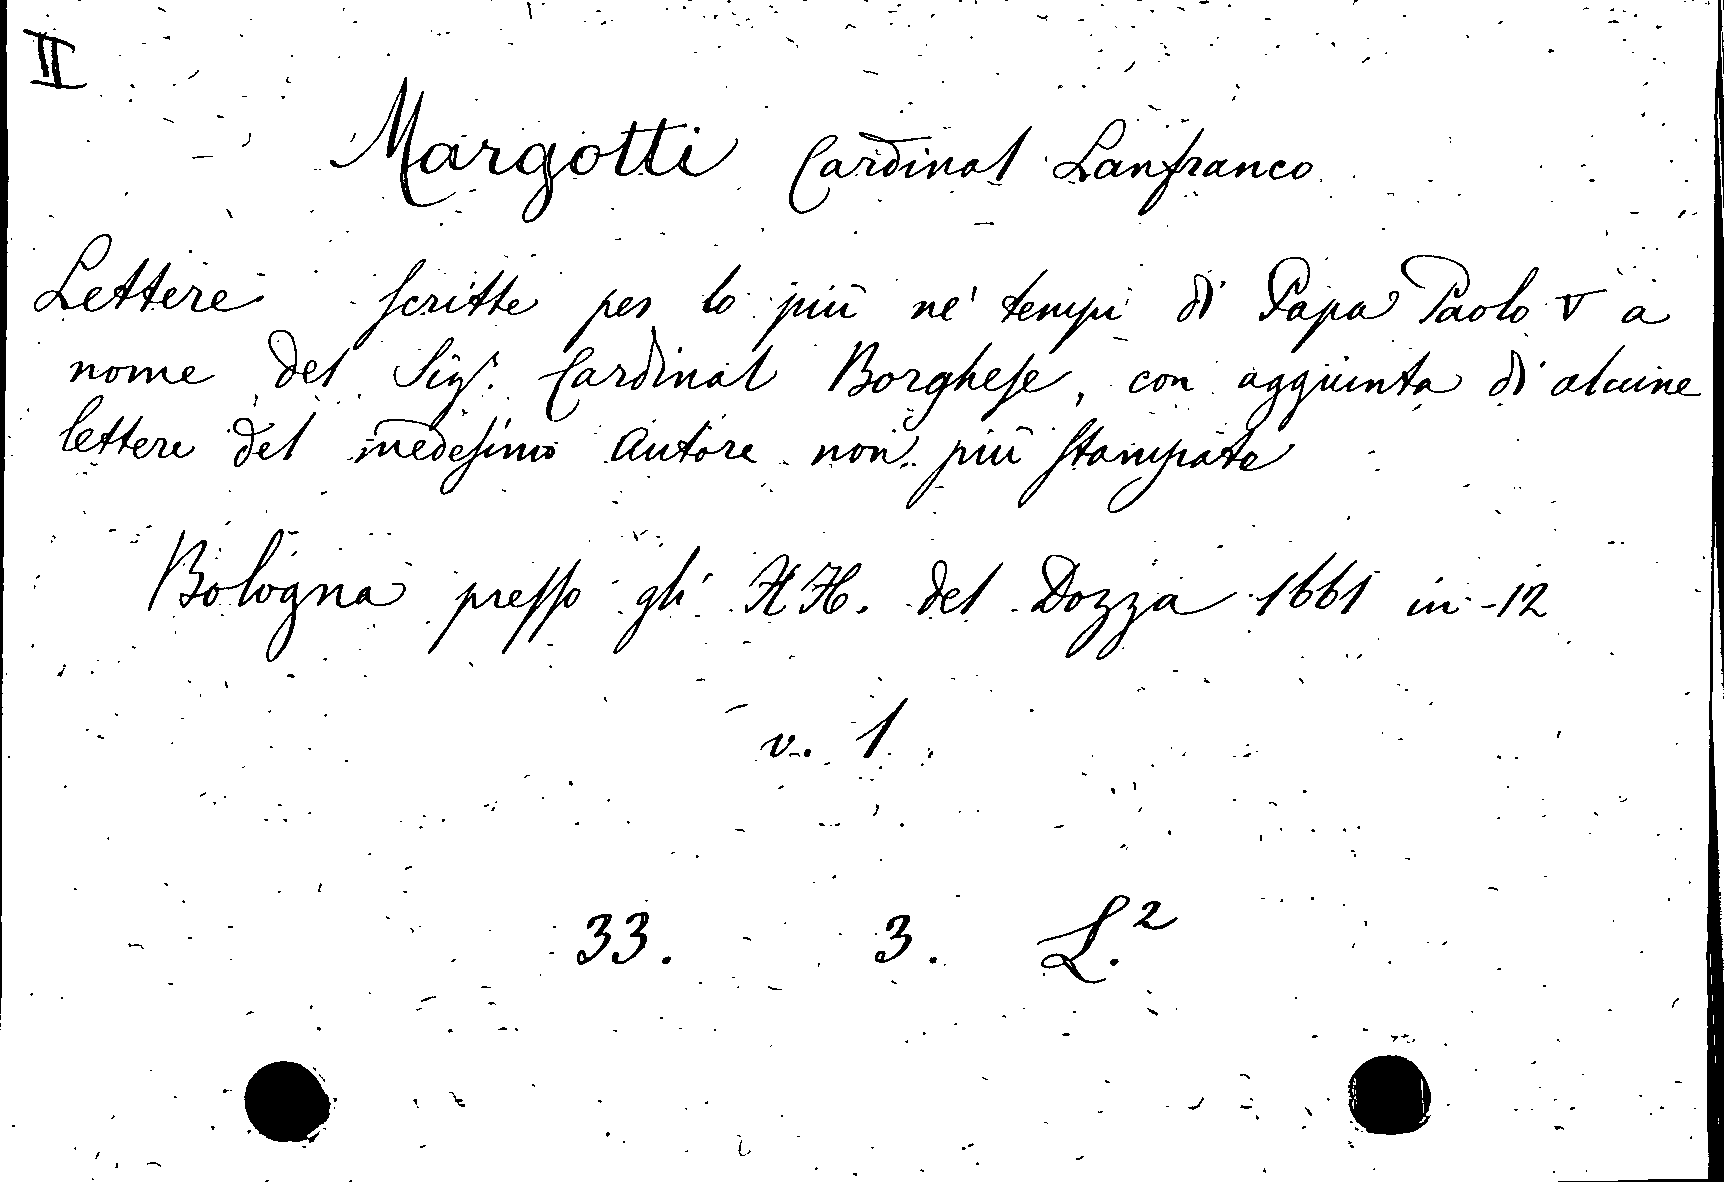 II
Margotti Cardinal Lanfranco
Lettere scritte per lo più ne' tempi di Papa Paolo V a
nome del Sigr. Cardinal Borghese, con aggiunta di alcune
lettere del medesimo autore non più stampate
Bologna presso gli HH. del Dozza 1661 in-12
v. 1
33. 3. L.²